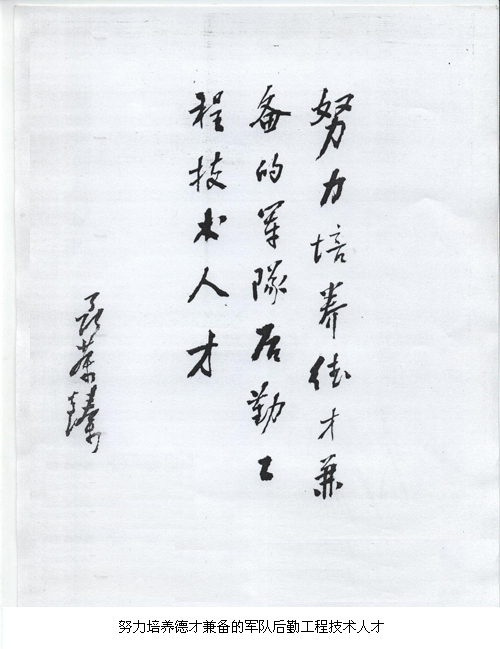 努力培养德才兼
备的军隊后勤工
程技术人才
聂荣臻
努力培养德才兼备的军队后勤工程技术人才